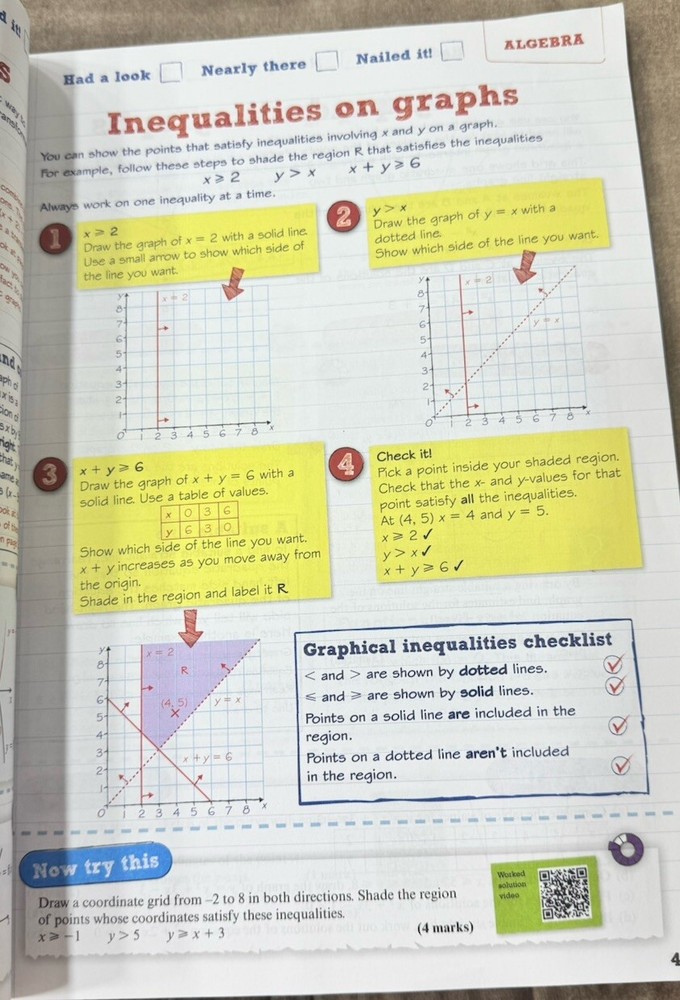 ALGEBRA
Had a look
Nearly there
Nailed it!
Inequalities on graphs
You can show the points that satisfy inequalities involving x and y on a graph.
For example, follow these steps to shade the region R that satisfies the inequalities
x ⩾ 2 y > x x + y ⩾ 6
Always work on one inequality at a time.
1
x ⩾ 2
Draw the graph of x = 2 with a solid line.
Use a small arrow to show which side of
the line you want.
y
x = 2
8
7
6
5
4
3
2
1
O 1 2 3 4 5 6 7 8 x
2
y > x
Draw the graph of y = x with a
dotted line.
Show which side of the line you want.
y
x = 2
8
7
6
y = x
5
4
3
2
1
O 1 2 3 4 5 6 7 8 x
3
x + y ⩾ 6
Draw the graph of x + y = 6 with a
solid line. Use a table of values.
x 0 3 6
y 6 3 0
Show which side of the line you want.
x + y increases as you move away from
the origin.
Shade in the region and label it R
y
x = 2
8
R
7
6
(4, 5)
y = x
5
4
3
x + y = 6
2
1
O 1 2 3 4 5 6 7 8 x
4
Check it!
Pick a point inside your shaded region.
Check that the x- and y-values for that
point satisfy all the inequalities.
At (4, 5) x = 4 and y = 5.
x ⩾ 2 ✓
y > x ✓
x + y ⩾ 6 ✓
Graphical inequalities checklist
< and > are shown by dotted lines.
⩽ and ⩾ are shown by solid lines.
Points on a solid line are included in the
region.
Points on a dotted line aren't included
in the region.
Now try this
Draw a coordinate grid from –2 to 8 in both directions. Shade the region
of points whose coordinates satisfy these inequalities.
x ⩾ –1 y > 5 y ⩾ x + 3
(4 marks)
Worked
solution
video
4